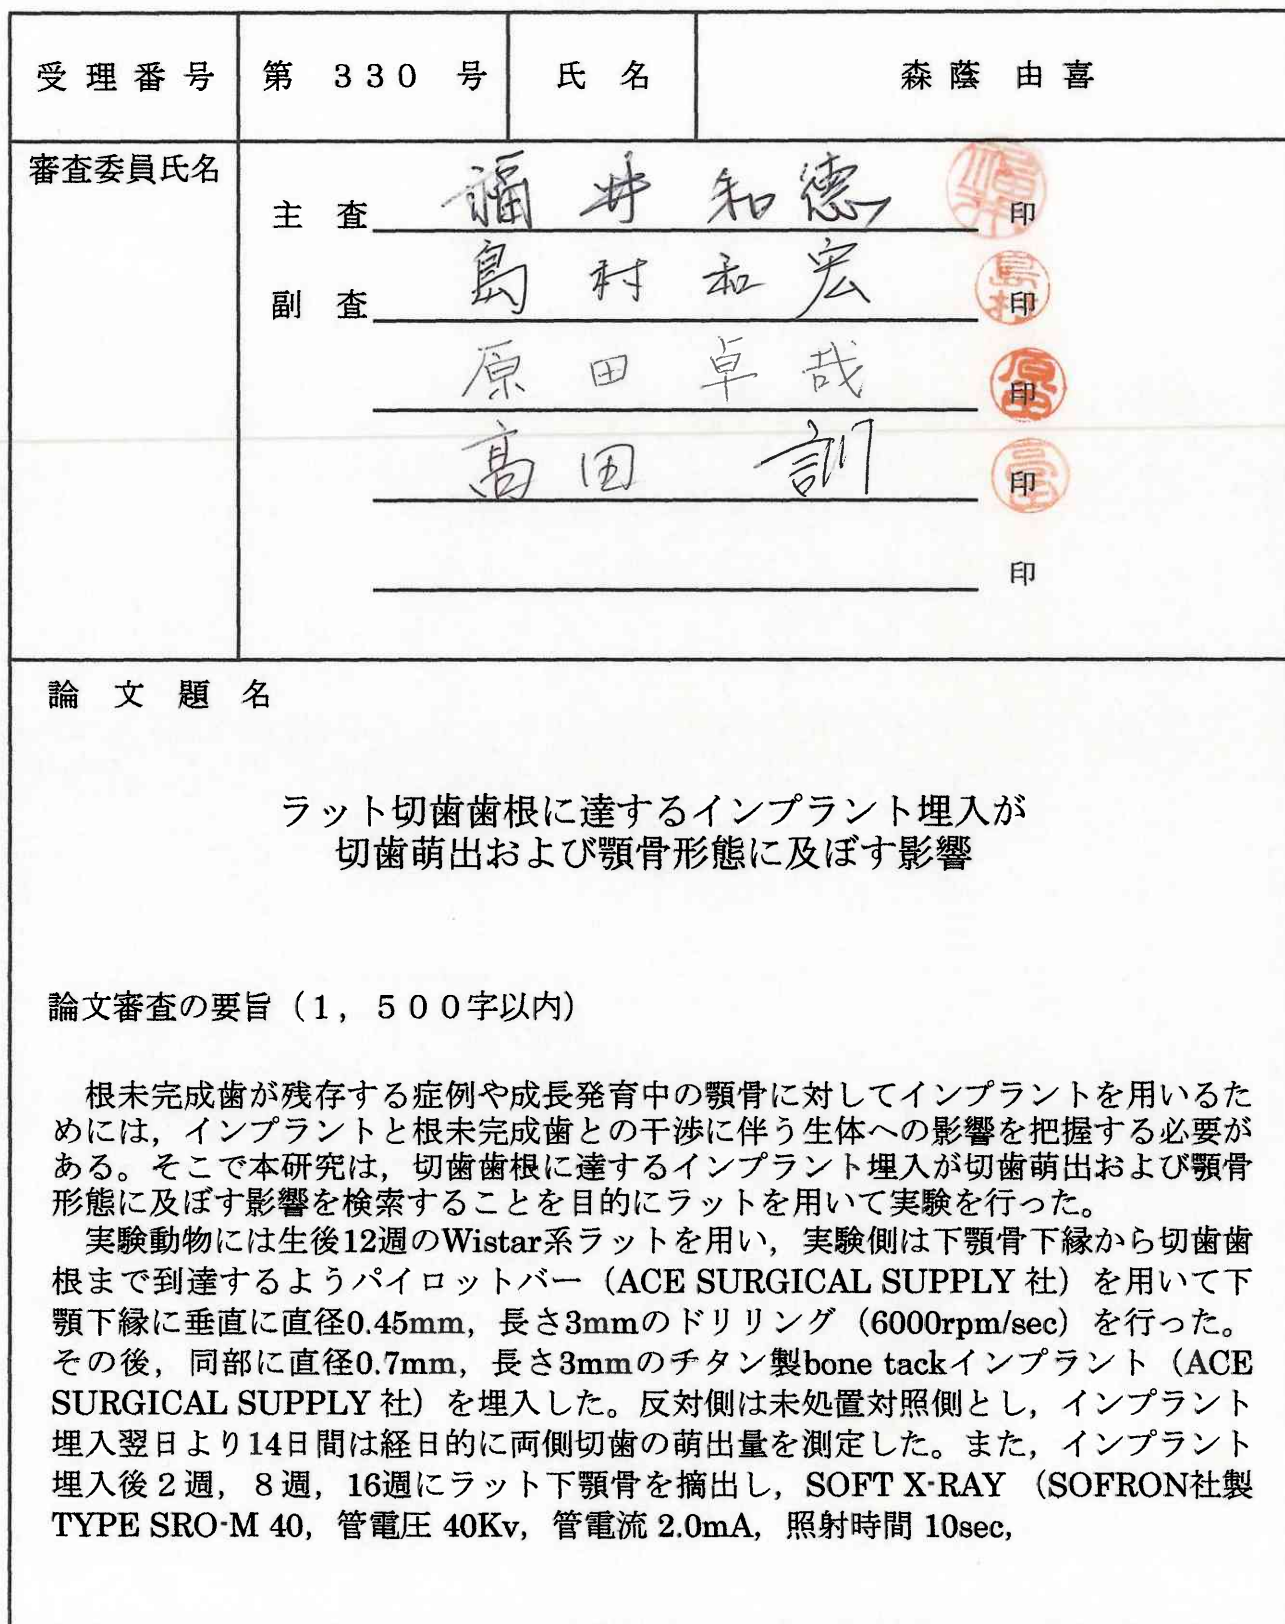 受理番号 第 330 号 氏 名 森蔭 由喜
審査委員氏名
主 査 福井和德 印
副 査 島村和宏 印
原田卓哉 印
高田 訓 印
印
論 文 題 名
ラット切歯歯根に達するインプラント埋入が
切歯萌出および顎骨形態に及ぼす影響
論文審査の要旨(1,500字以内)
根未完成歯が残存する症例や成長発育中の顎骨に対してインプラントを用いるた
めには,インプラントと根未完成歯との干渉に伴う生体への影響を把握する必要が
ある。そこで本研究は,切歯歯根に達するインプラント埋入が切歯萌出および顎骨
形態に及ぼす影響を検索することを目的にラットを用いて実験を行った。
実験動物には生後12週のWistar系ラットを用い,実験側は下顎骨下縁から切歯歯
根まで到達するようパイロットバー(ACE SURGICAL SUPPLY 社)を用いて下
顎下縁に垂直に直径0.45mm,長さ3mmのドリリング(6000rpm/sec)を行った。
その後,同部に直径0.7mm,長さ3mmのチタン製bone tackインプラント(ACE
SURGICAL SUPPLY 社)を埋入した。反対側は未処置対照側とし,インプラント
埋入翌日より14日間は経日的に両側切歯の萌出量を測定した。また,インプラント
埋入後2週,8週,16週にラット下顎骨を摘出し,SOFT X-RAY (SOFRON社製
TYPE SRO-M 40,管電圧 40Kv,管電流 2.0mA,照射時間 10sec,